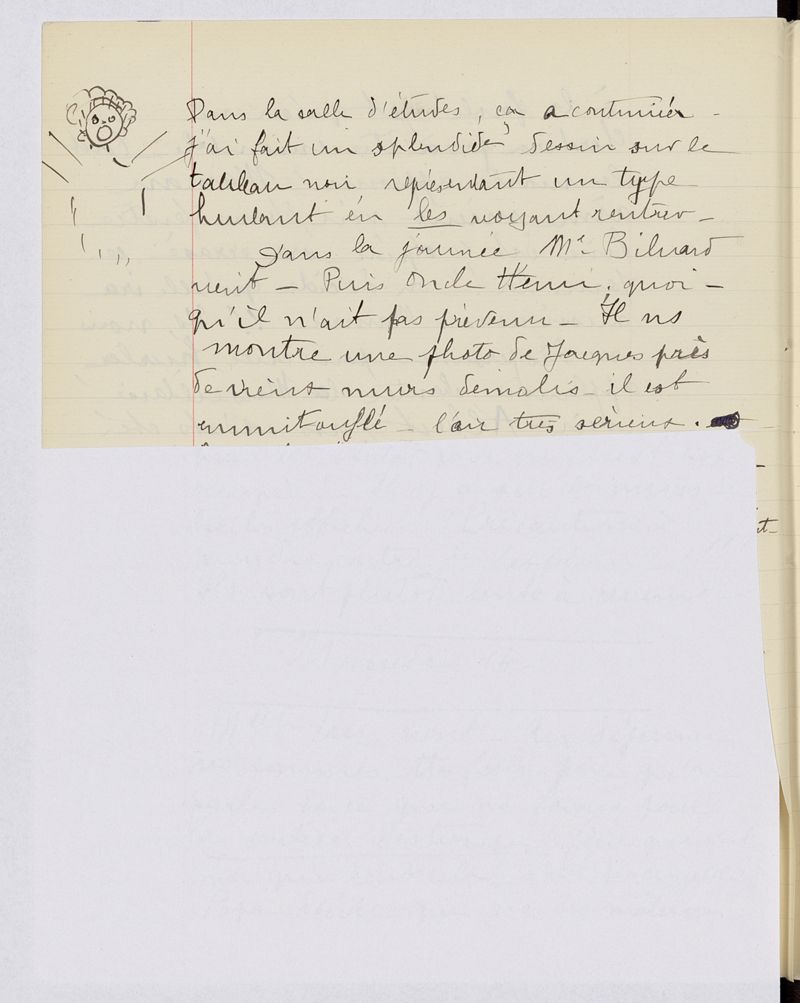 Dans la salle d'études, ça a continuér -
J'ai fait un splendide dessin sur le
tableau noir représentant un type
hurlant en les voyant rentrer -
Dans la journée Mr Biluard
vient - Puis Oncle Henri, quoi -
qu'il n'ait pas prévenu - Il ns
montre une photo de Jacques près
de vieux murs démolis - il est
emmitouflé - l'air très sérieux.